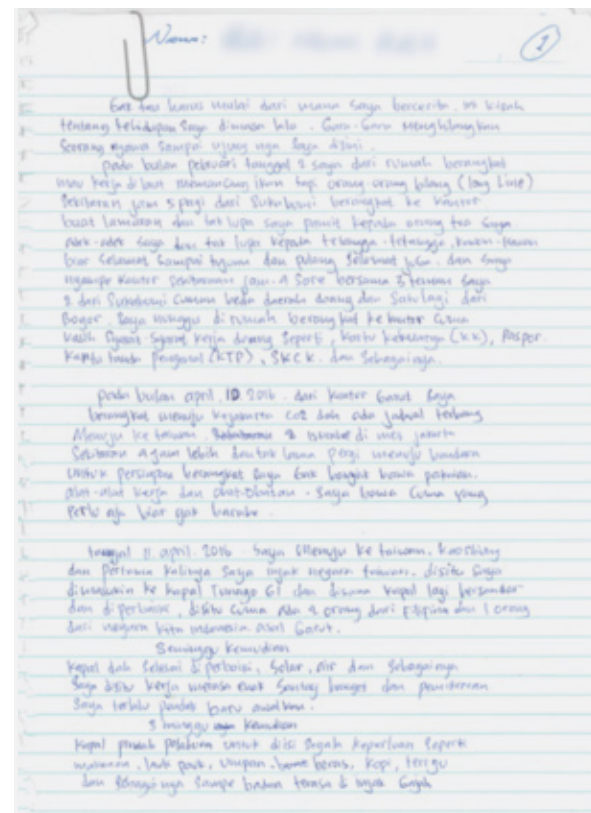 Nama:
1
Gak tau harus mulai dari mana saya bercerita. ini kisah
tentang kehidupan saya dimasa lalu. Gara-Gara menghilangkan
seorang nyawa sampai ujung nya saya disini.
pada bulan pebuari tanggal 2 saya dari rumah berangkat
mau kerja di laut memancing ikan tapi orang-orang bilang (long Line)
Sekitaran jam 5 pagi dari Sukabumi berangkat ke kantor
buat lamaran dan tak lupa saya pamit kepada orang tua saya
adek-adek saya dan tak lupa kepada tetangga-tetangga, kawan-kawan
biar selamat sampai tujuan dan pulang selamat juga. dan saya
nyampe kantor sekitaran jam 4 sore bersama 3 teman saya
2 dari Sukabumi cuman beda daerah doang dan satu lagi dari
Bogor. Saya nunggu di rumah berangkat ke kantor cuma
kasih syarat-syarat kerja doang seperti, kartu keluarga (KK), Paspor.
Kartu tanda pengenal (KTP), SKCK. dan sebagainya.
pada bulan april, 10. 2016. dari kantor Garut saya
berangkat menuju kejakarta dah ada jadwal terbang
Menuju ke taiwan. istirahat di mes jakarta
Sekitaran 4 jam lebih dan tak lama pergi menuju bandara
untuk persiapan berangkat saya Gak banyak bawa pakaian.
alat-alat kerja dan obat-obatan. saya bawa cuma yang
perlu aja biar gak
tanggal 11. april. 2016. saya menuju ke taiwan. Kaoshiung
dan pertama kalinya saya injak negara taiwan. disitu saya
dimasukin ke kapal Tunago 61 dan disana kapal lagi bersandar
dan diperbaiki, disitu cuma ada 2 orang dari pilipina dan 1 orang
dari negara kita indonesia asal Garut.
Seminggu kemudian
Kapal dah selesai diperbaiki, solar, air dan sebagainya
saya disitu kerja merasa enak santay banget dan pemikiran
saya terlalu pendek baru awalnya.
3 minggu kemudian
kapal pindah pelabuan untuk diisi segala keperluan seperti
makanan, lauk pauk, umpan, beras, kopi, terigu
dan sebagainya sampe badan terasa di injak Gajah